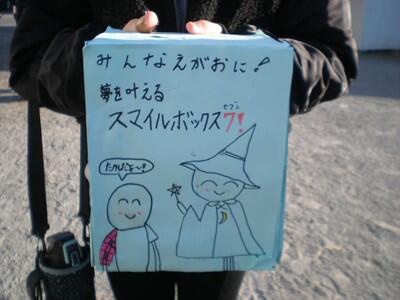 みんなえがおに!
夢を叶える
スマイルボックス7!
セブン
たのしいよ〜!